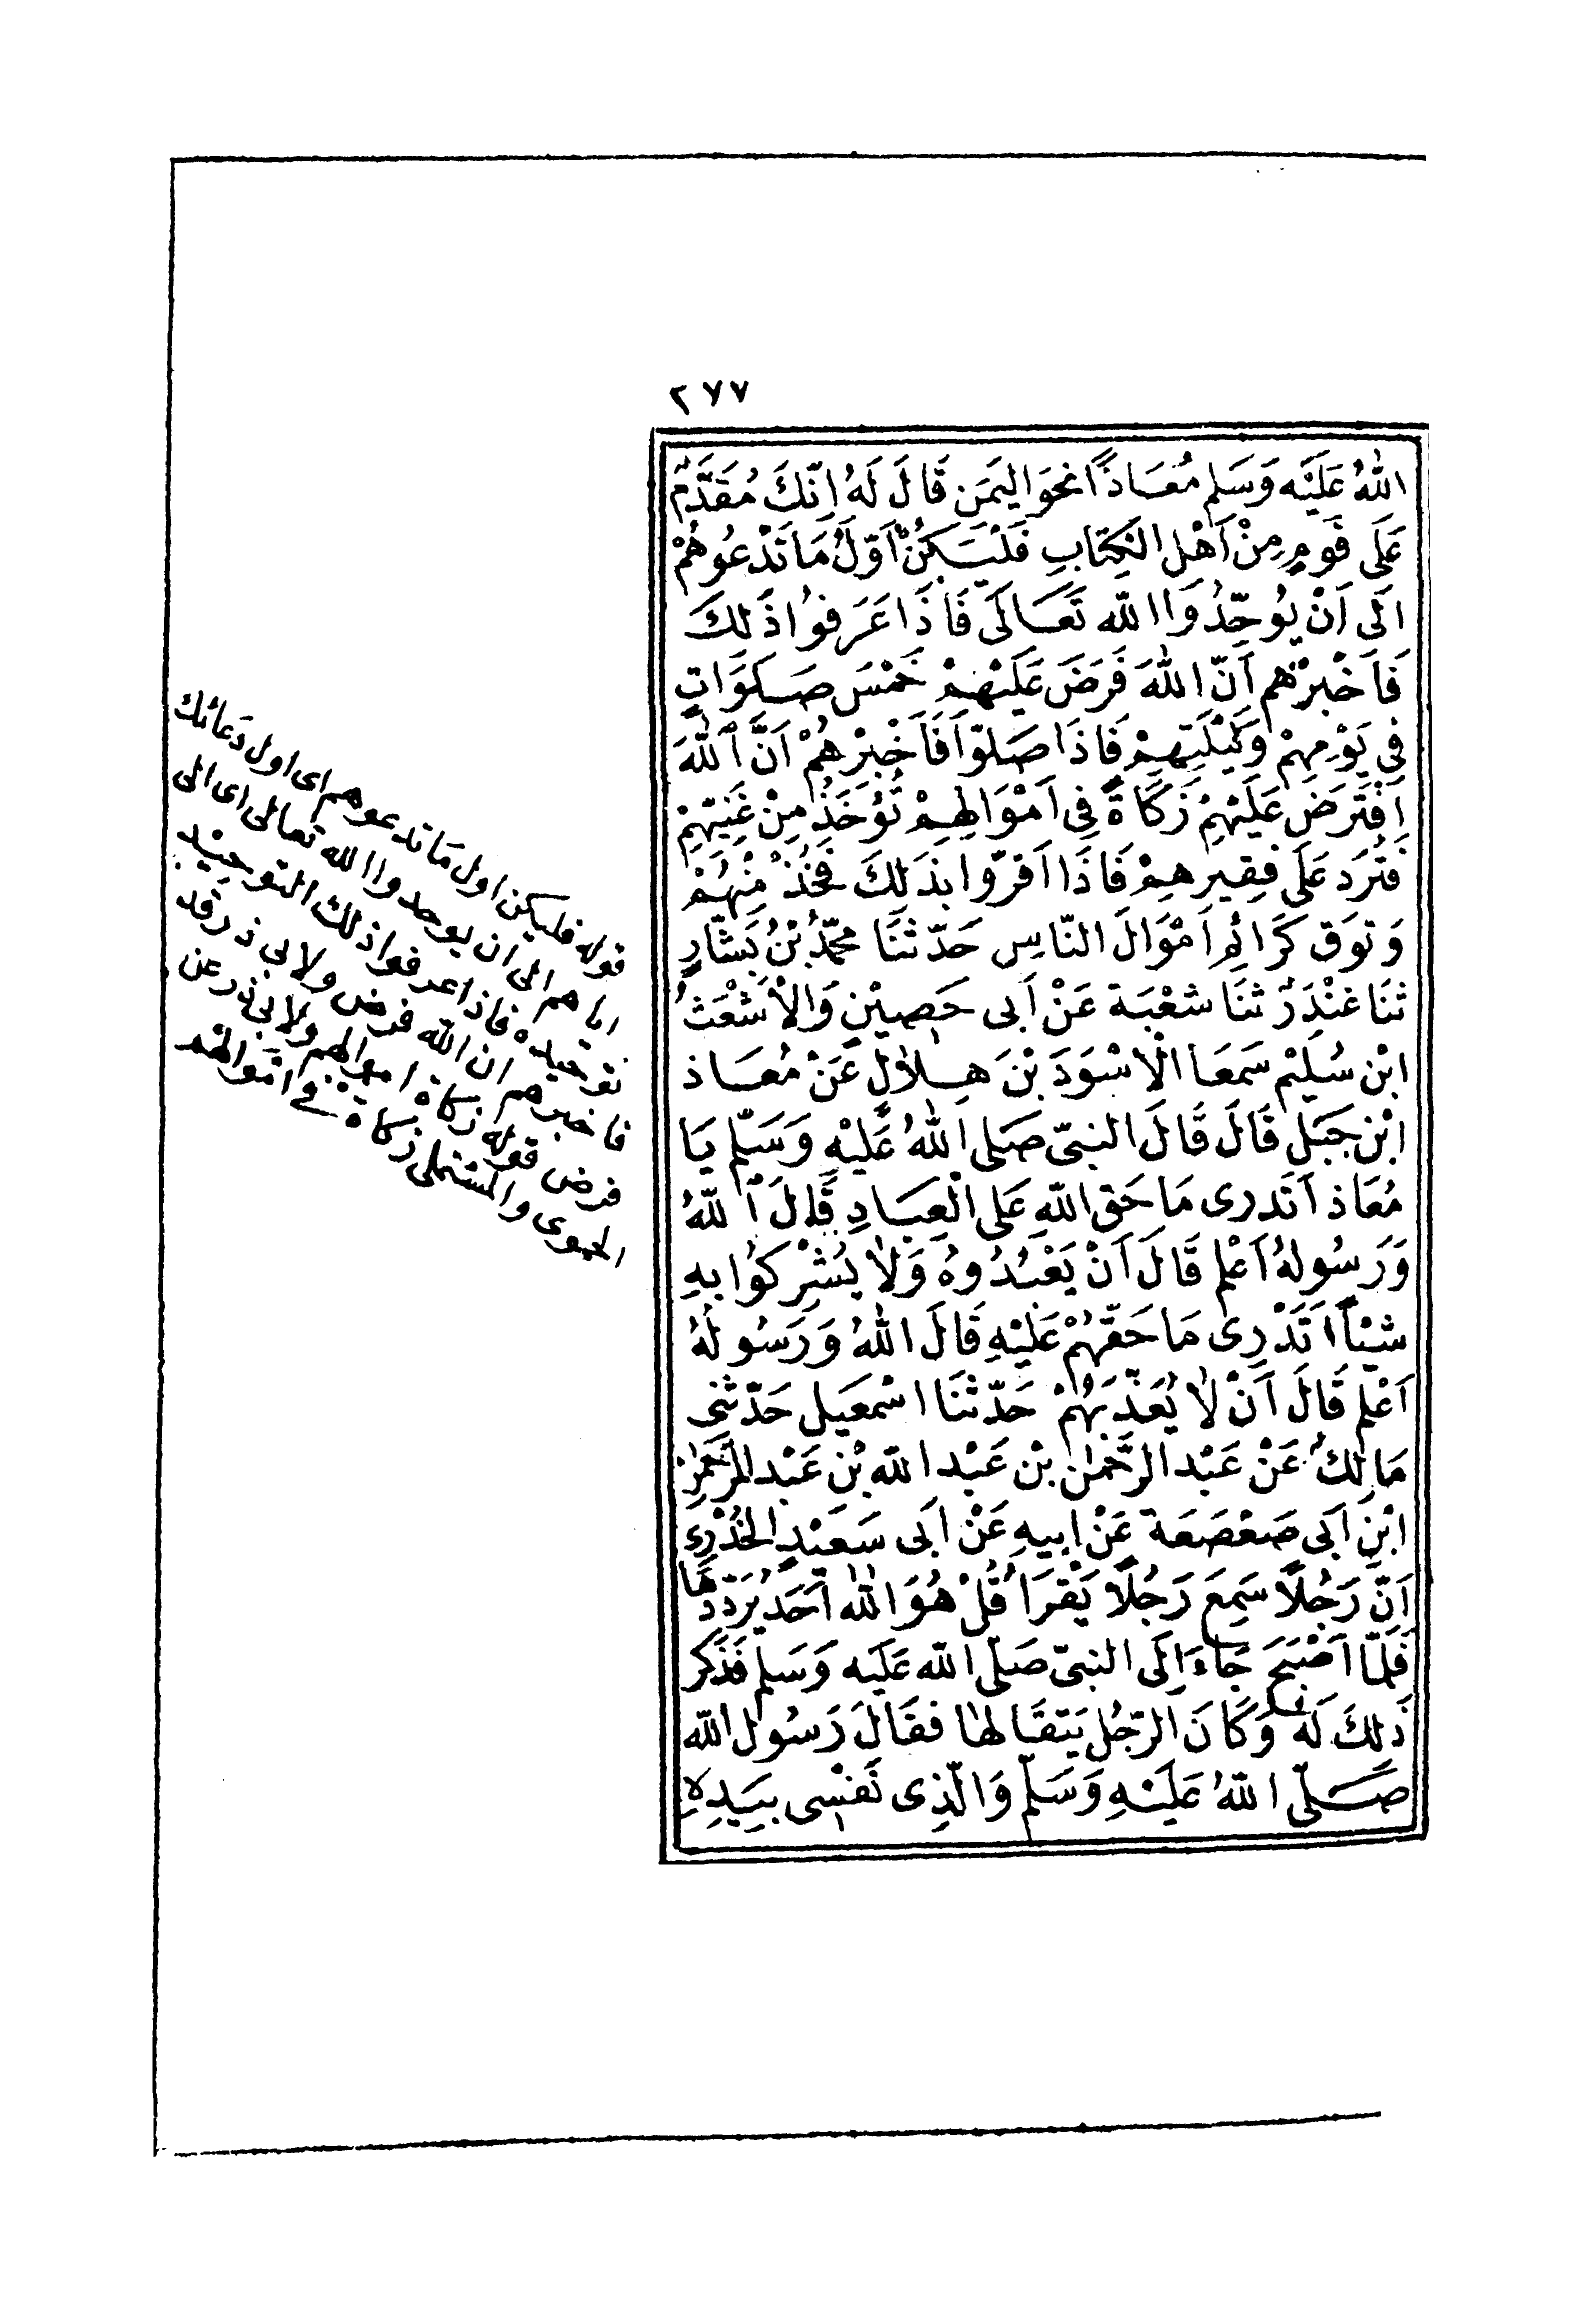 ٢٧٧
اللهُ عَلَيْه وَسَلم مُعَاذًا نحوَ اليَمَن قَالَ لَهُ اِنّكَ مُقَدَّمٌ
عَلَى قَومٍ مِنْ اَهْلِ الكِتَابِ فَلْيَكُنْ اَوّلُ مَا تَدْعُوهُمْ
اَلى اَنْ يُوحِّدُوا اللّه تَعَالَى فَاذَا عَرَفوُا ذَلكَ
فَاَخْبِرْهُم اَنّ اللهَ فَرَضَ عَلَيْهِمْ خَمْسَ صَلَوَاتٍ
فِي يَوْمِهِمْ وَلَيْلَتِهِمْ فَاِذَا صَلوّا فَاَخْبِرْهُمْ اَنَّ اللّهَ
اِفْتَرَضَ عَلَيْهِمْ زَكَاةً فِى اَمْوَالِهِمْ تُؤْخَذُ مِنْ غَنِيّهِمْ
فَتُرَد عَلَى فِقيرِهِمْ فَاذَا اَقَرّوا بذَلِكَ فَخُذْ مِنْهُمْ
وَتَوَق كَرَائِمَ اَمْوَالَ النّاسِ حَدّثنَا محمّدُ بْنُ بَشّارٍ
ثنَا غنْدَرٌ ثنَا شعْبَة عَنْ اَبى حَصِيْنٍ وَالاَشْعَث
ابْن سُلَيْم سَمَعَا الْاَسْوَدَ بْنَ هِلالٍ عَنْ مُعَاذ
ابْن جَبَلٍ قَالَ قَالَ النبىّ صَلى اللهُ عَلَيْهِ وَسَلّم يَا
مُعَاذ اَتَدرى مَا حَق اللّهِ عَلى الْعِبَادِ قَالَ اَللّهُ
وَرَسُولهُ اَعْلم قَالَ اَنْ يَعْبُدُوهُ وَلاَ يُشْرِكوُا بِهِ
شيْئًا اَتَدْرِى مَا حَقّهُمْ عَلَيْهِ قَالَ اللهُ وَرَسُولهُ
اَعْلم قَالَ اَنْ لاَ يُعَذّبَهُمْ حَدّثنَا اسْمعَيل حَدّثنى
مَالكٌ عَنْ عَبْد الرَّحْمٰن بْن عَبْد اللّه بْن عَبْد الرَّحْمٰن
ابْنِ اَبى صَعْصَعَة عَنْ اَبِيهِ عَنْ اَبى سَعَيْدٍ الخُدْرِىِ
اَنّ رَجُلاً سَمِعَ رَجُلاً يَقْرَأُ قُلْ هُوَ اللّه اَحَد يُرَدّدُهَا
فَلَمّا اَصْبَحَ جَاءَ اِلَى النبىّ صَلّى اللّه عَلَيه وَسَلم فذَكر
ذَلكَ لَهُ وَكَانَ الرّجُل يَتَقَالهَا فقَال رَسُول اللّه
صَلّى اللّهُ عَلَيْهِ وَسَلّم وَالّذِى نَفْسِى بيَدِهِ
قوله فليكن اول مَا تدعوهم اى اول دَعائك
اياهم الى ان يوحدوا الله تعالى اى الى
توحيده فاذا عرفوا ذلك التوحيد
فاخبرهم ان الله فرض ولابى ذر قد
فرض قوله زكاة اموالهم ولابى ذر عن
الحموى والمستملى زكاة فى اموالهم